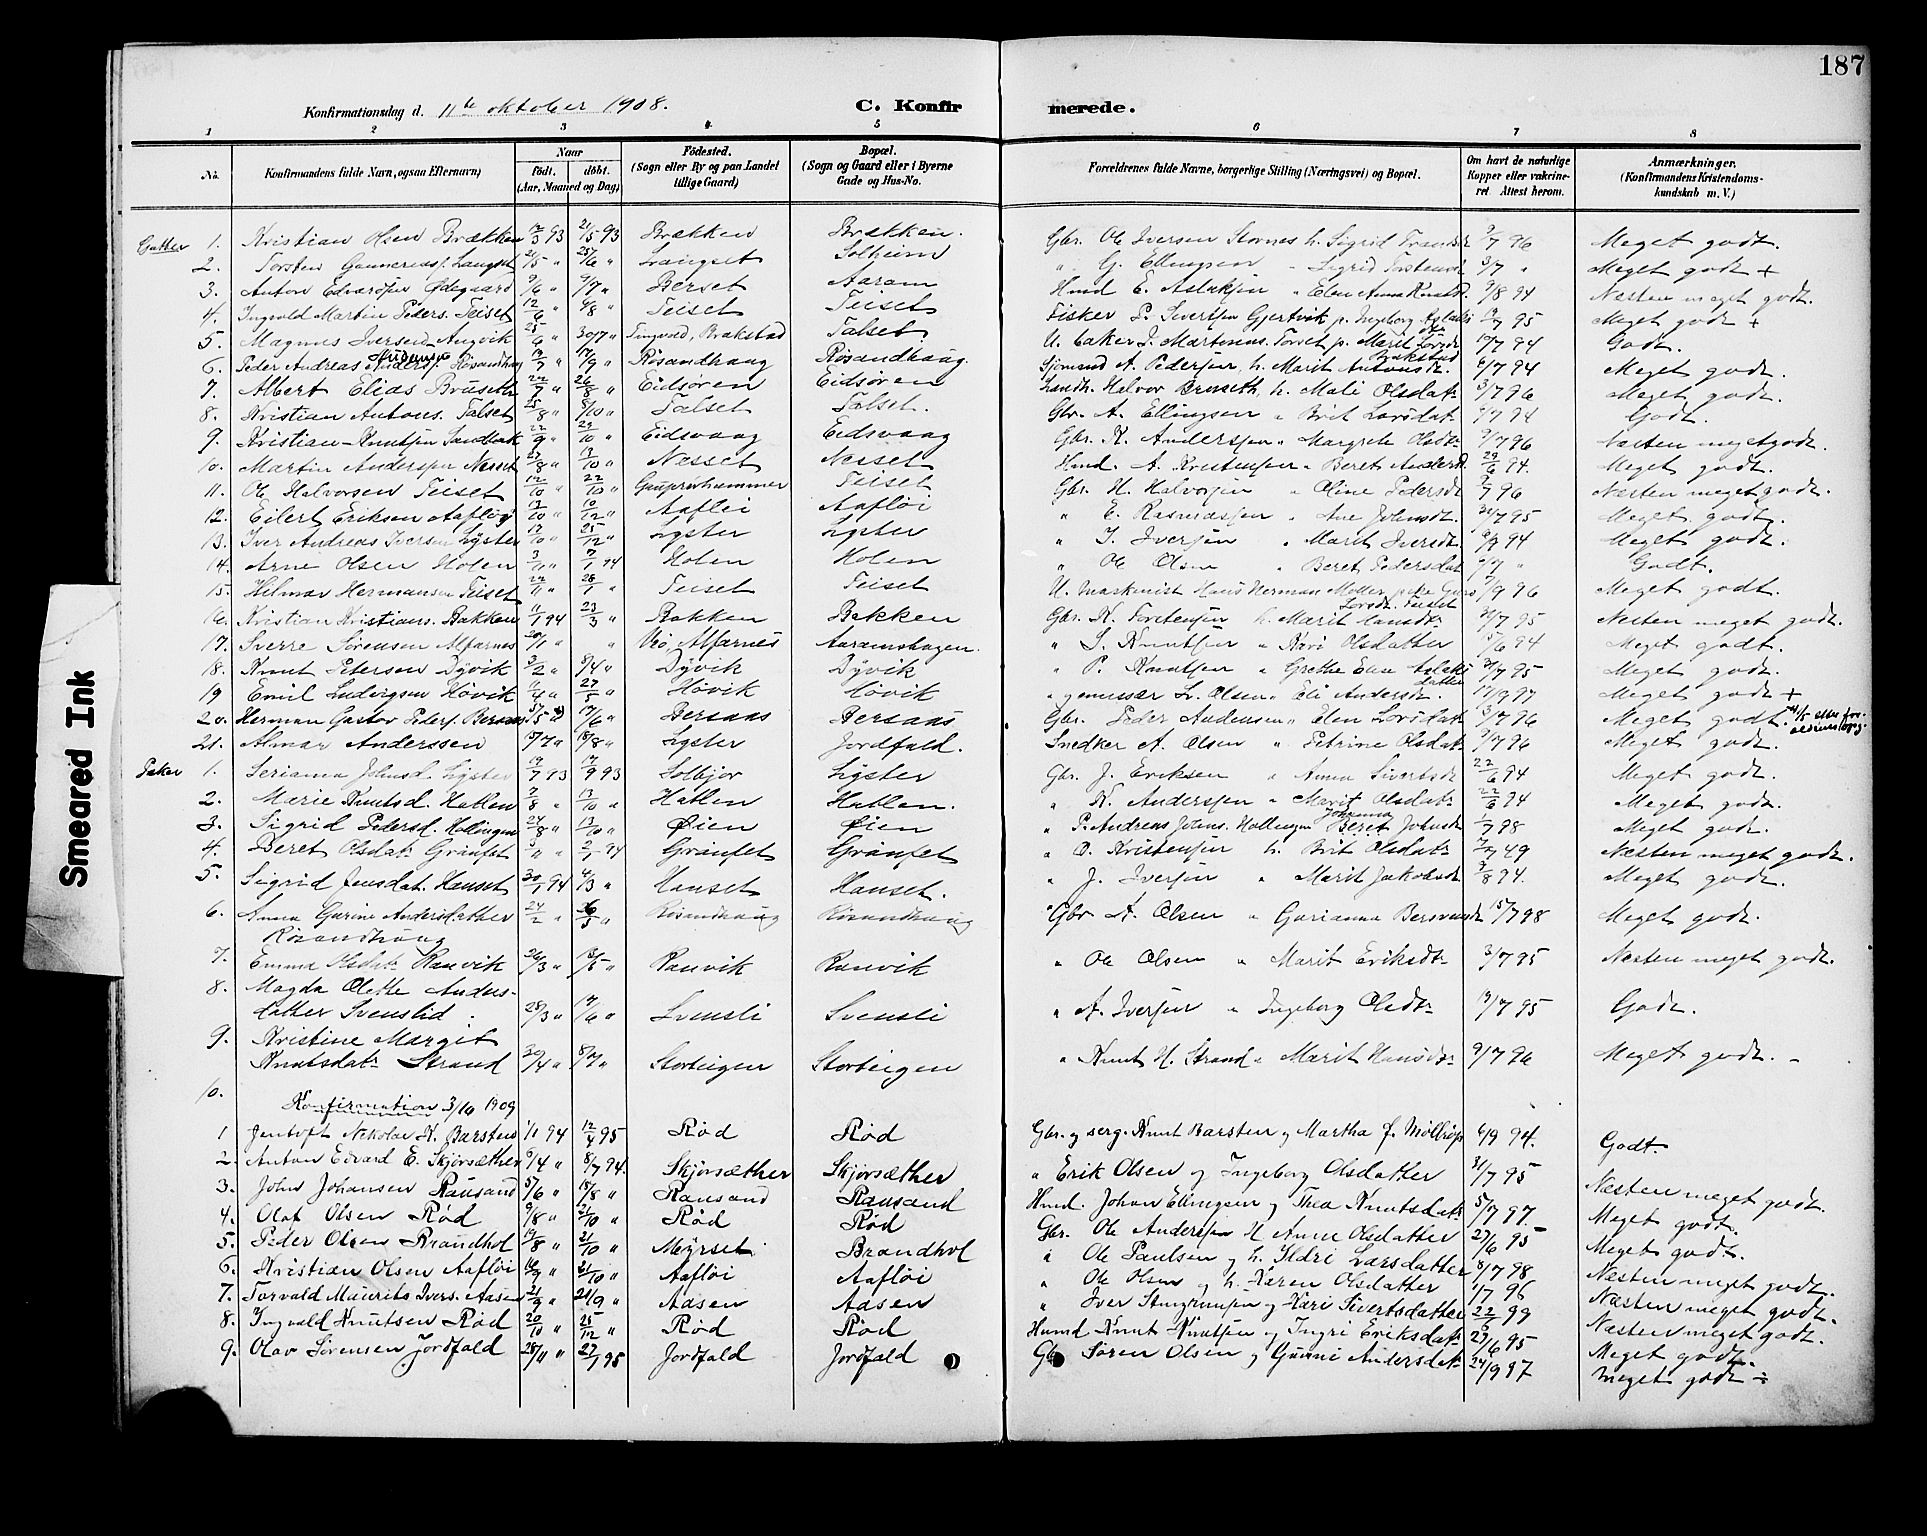 187
Konfirmationsdag d. 11te oktober 1908. C. Konfirmerede.
1 2 3 4 5 6 7 8
No. Konfirmandens fulde Navn, ogsaa Efternavn) Naar født. døbt. (Aar, Maaned og Dag) Fødested. (Sogn eller By og paa Landet tillige Gaard) Bopæl. (Sogn og Gaard eller i Byerne Gade og Hus-No. Forældrenes fulde Navne, borgerlige Stilling (Næringsvei) og Bopæl. Om havt de naturlige Kopper eller vakcineret. Attest herom. Anmærkninger. (Konfirmandens Kristendomskundskab m. V.)
Gutter 1. Kristian Olsen Brækken 12/3 93 21/5 93 Brækken Brækken. Gbr. Ole Iversen Stornes h. Sigrid 96 Meget godt.
2. Torsten Gunnerius Langset 21/5 " 25/6 " Langset Solheim " G. Ellingsen " Sigrid 3/7 " Meget godt +
3. Anton Edvardsen Ødegaard 9/6 " 9/7 " Berset Aaram Hmd E. Aslaksen " Elen Anna Knutsd. 9/8 94 Næsten meget godt.
4. Ingvald Martin Peders. Teiset 12/6 " 6/8 " Teiset Teiset Fisker P. Sivertsen Gjertvik p. Ingeborg 95 Meget godt +
5. Magnus Iversen Angvik 25/6 " 30/7 " Tingvold, Brakstad Talset. U. baker I. Martinus. Torvet p. Marit Brakstad 94 Godt.
6. Peder Andreas Anders. Røsandhaug 17/9 " Røsandhaug Røsandhaug. Sjømand A. Pedersen h. Marit Antonsdt. 6/7 94 Meget godt.
7. Albert Elias Bruseth 22/7 " 26/8 " Eidsøren Eidsøren Landh. Halvor Bruseth h. Mali Olsdatr 3/7 96 Meget godt.
8. Kristian Antons. Talset 25/8 " 8/10 " Talset Talset. Gbr. A. Ellingsen " Brit Larsdatr 94 Godt.
9. Kristian Knutsen Sandbak 22/9 " 29/10 " Eidsvaag Eidsvaag Gbr. K. Andersen " Margrete Olsdtr 96 Næsten meget godt.
10. Martin Andersen Nesset 27/8 " 13/10 " Nesset Nesset Hmd. A. Kristensen " Beret Andersd. 29/6 94. Meget godt.
11. Ole Halvorsen Teiset 12/10 " 22/10 " Teiset Gbr. H. Halvorsen " Oline Pedersdt 96 Næsten meget godt.
12. Eilert Eriksen Aafløi 13/10 " 10/12 " Aafløi Aafløi " E. Rasmussen " Ane Johnsdt. 95 Meget godt.
13. Iver Andreas Iversen Ljster 12/10 " 25/12 " Ljster Ljster " I. Iversen " Marit Iversdt. 94 Meget godt.
14. Arne Olsen Holen 3/11 " 7/1 94 Holen Holen " Ole Olsen " Beret Pedersdat " Godt.
15. Helmar Hermansen Teiset 22/11 " 28/1 " Teiset Teiset U. maskinist Hans Herman Møller, pike Guro Larsdt. Teiset 96 Meget godt.
16. Kristian Kristians. Bakken 11/1 94 23/3 " Bakken Bakken Gbr. K. Torstensen h. Marit 95 Næsten meget godt.
17. Sverre Sørensen Alfarnes 20/1 " " Veø, Alfarnes Aaramshagen. " S. Knutsen " Kari Olsdatter 15/6 94 Meget godt.
18. Knut Petersen Dÿvik 3/2 " 8/4 " Dÿvik Dÿvik " P. Knutsen " Grethe Elen Aslaksdatter 95 Meget godt.
19 Emil Ludvigsen Høvik 11/4 " 27/5 " Høvik Høvik " L. Olsen " Eli Andersdt. 97 Meget godt +
20. Herman Gustav Peders. Bersaas 17/6 " Bersaas Bersaas Gbr. Peder Andersen " Elen Larsdatr 3/7 96 Meget godt.
21. Almar Anderssen 15/7 " 18/8 " Ljster Jordfald. Snedker A. Olsen " Petrine Olsdatr 96 Meget godt.
Piker 1. Serianna Johnsd. Ljster 19/7 93 17/9 93 Solbjør Ljster Gbr. J. Eriksen " Anna Sivertsdt 22/6 94 Meget godt.
2. Marie Knutsd. Hatlen 7/8 " 13/10 " Hatlen Hatlen. " K. Andersen " Marit Olsdatr 22/6 94 Meget godt.
3. Sigrid Pedersd. Hollingen 24/8 " 13/10 " Øien Øien " P. Andreas Johns. Hollingen Beret Johanna Johnsdt 98 Meget godt.
4. Beret Olsdatr Grånset 3/11 " 2/1 94 Grånset Grånset " O. Kristensen h. Brit Olsdatr Næsten meget godt.
5. Sigrid Jensdat. Hanset 30/1 94 4/3 " Hanset Hanset. " J. Iversen " Marit Jakobsdt 3/8 94. Meget godt.
6. Anna Gurine Andersdatter Røsandhaug 24/2 " Røsandhaug Røsandhaug Gbr A. Olsen " Gurianna 15/7 98 Meget godt.
7. Emma Olsdatr Ranvik 26/3 " 13/5 " Ranvik Ranvik " Ole Olsen " Marit Eriksdtr 3/7 95 Næsten meget godt.
8. Magda Olette Andersdatter Svenslid 28/3 " 17/6 " Svensli Svensli " A. Iversen " Ingeborg Olsdtr 19/7 95 Godt.
9. Kristine Margit Knutsdatr Strand 30/4 " 8/7 " Storteigen Storteigen " Knut H. Strand " Marit Hansdtr 9/7 96 Meget godt.
10.
Konfirmation 3/10 1909
1 Jentoft Nikolai K. Barsten 1/11 94 12/4 95 Rød Rød Gbr. og serg. Knut Barsten og Martha f. Møltrøp 6/9 94. Godt.
2. Anton Edvard E. Skjørsæther 6/4 " 8/7 94. Skjørsæther Skjørsæther " Erik Olsen og Ingeborg Olsdatter 31/7 95 Næsten meget godt.
3. John Johansen Rausand 5/6 " 15/8 " Rausand Rausand Hmd. Johan Ellingsen og Thea Knutsdatr 5/7 97. Meget godt.
4. Olaf Olsen Rød 9/8 " 21/10 " Rød Rød Gbr. Ole Andersen H Anne Olsdatter 27/6 95 Meget godt.
5. Peder Olsen Brandhol 19/8 " 21/10 " Meÿrset Brandhol " Ole Paulsen og h. Ildri Larsdatter 8/7 98 Næsten meget godt.
6. Kristian Olsen Aafløi 16/9 " 21/10 " Aafløi Aafløi " Ole Olsen og h. Karen Olsdatter 1/7 96 Næsten meget godt.
7. Torvald Maurits Ivers. Aasen 21/9 " 21/9 " Aasen Aasen " Iver og Kari Sivertsdatter 99 Næsten meget godt.
8. Ingvald Knutsen Rød 20/10 " 25/12 " Rød Rød Hmd Knut Knutsen og Ingri Eriksdatr 29/6 95 Meget godt.
9. Olav Sørensen Jordfald 28/11 " 27/1 95 Jordfald Jordfald Gbr Søren Olsen og Gurine Andersdatr 24/9 97 Meget godt ÷
Smeared Ink